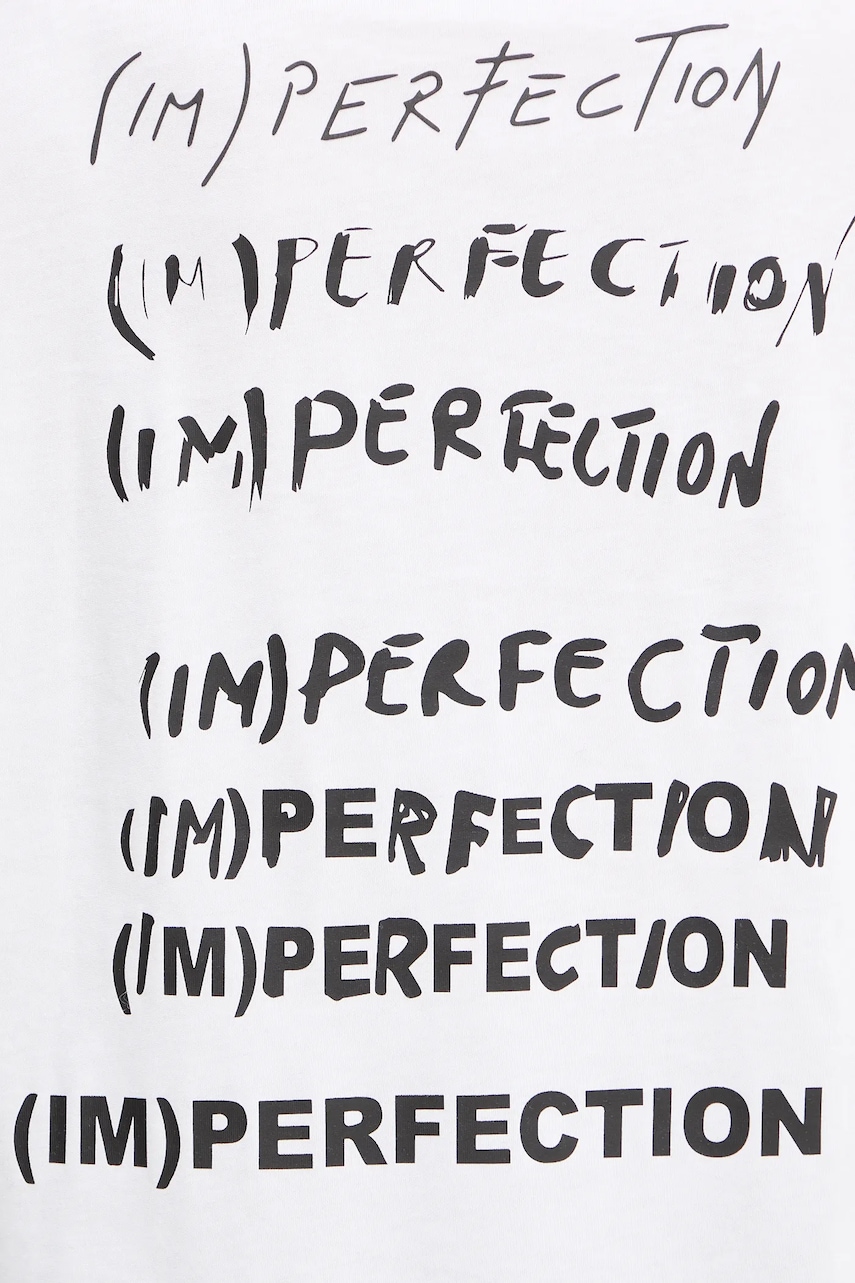 (IM)PERFECTION
(IM)PERFECTION
(IM)PERFECTION
(IM)PERFECTION
(IM)PERFECTION
(IM)PERFECTION
(IM)PERFECTION